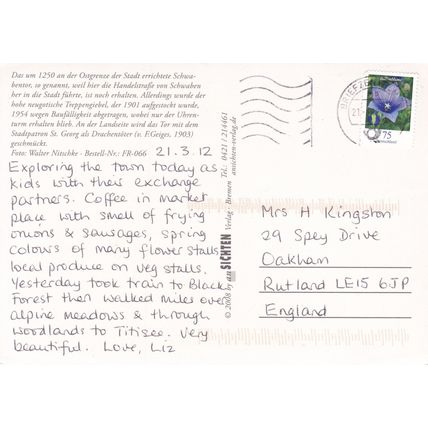 Das um 1250 an der Ostgrenze der Stadt errichtete Schwa-
bentor, so genannt, weil hier die Handelsstraße von Schwaben
her in die Stadt führte, ist noch erhalten. Allerdings wurde der
hohe neugotische Treppengiebel, der 1901 aufgestockt wurde,
1954 wegen Baufälligkeit abgetragen, wobei nur der Uhren-
turm erhalten blieb. An der Landseite wird das Tor mit dem
Stadtpatron St. Georg als Drachentöter (v. F.Geiges, 1903)
geschmückt.
Foto: Walter Nitschke - Bestell-Nr.: FR-066
21.3.12
Exploring the town today as
kids with their exchange
partners. Coffee in market
place with smell of frying
onions & sausages, spring
colours of many flower stalls
local produce on veg stalls.
Yesterday took train to Black
Forest then walked miles over
alpine meadows & through
woodlands to Titisee. Very
beautiful. Love, Liz
© 2008 by anSICHTEN Verlag · Bremen Tel.: 0421 / 214461
ansichten-verlag.de
BRIEFZ
21.
75
Deutschland
Mrs H Kingston
29 Spey Drive
Oakham
Rutland LE15 6JP
England